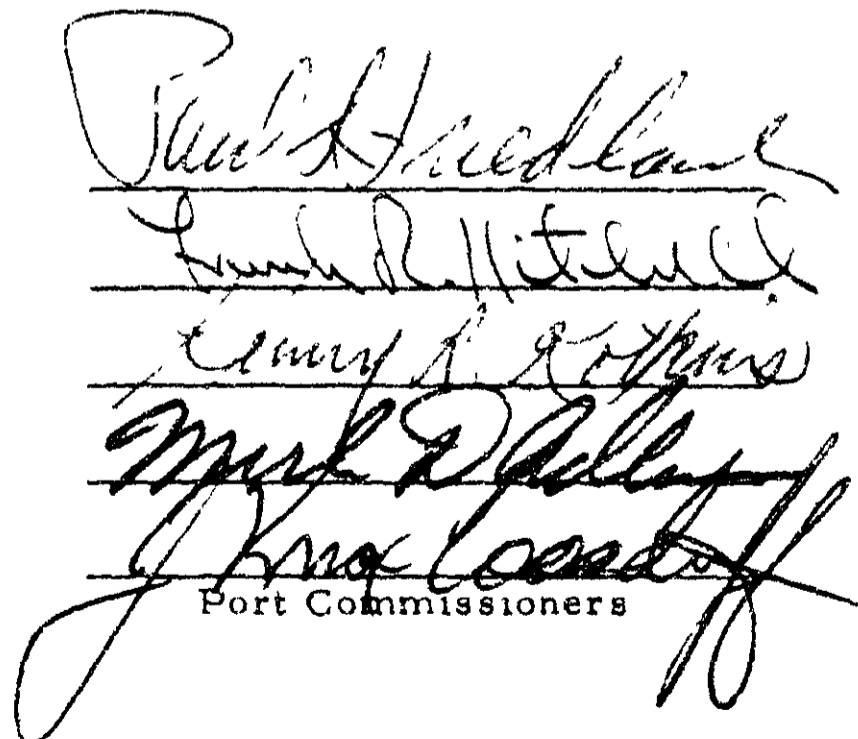 Paul S. Friedlander
Frank R. Kitchell
Henry L. Kotkins
Merle D. Adlum
J. Knox Woodruff
Port Commissioners